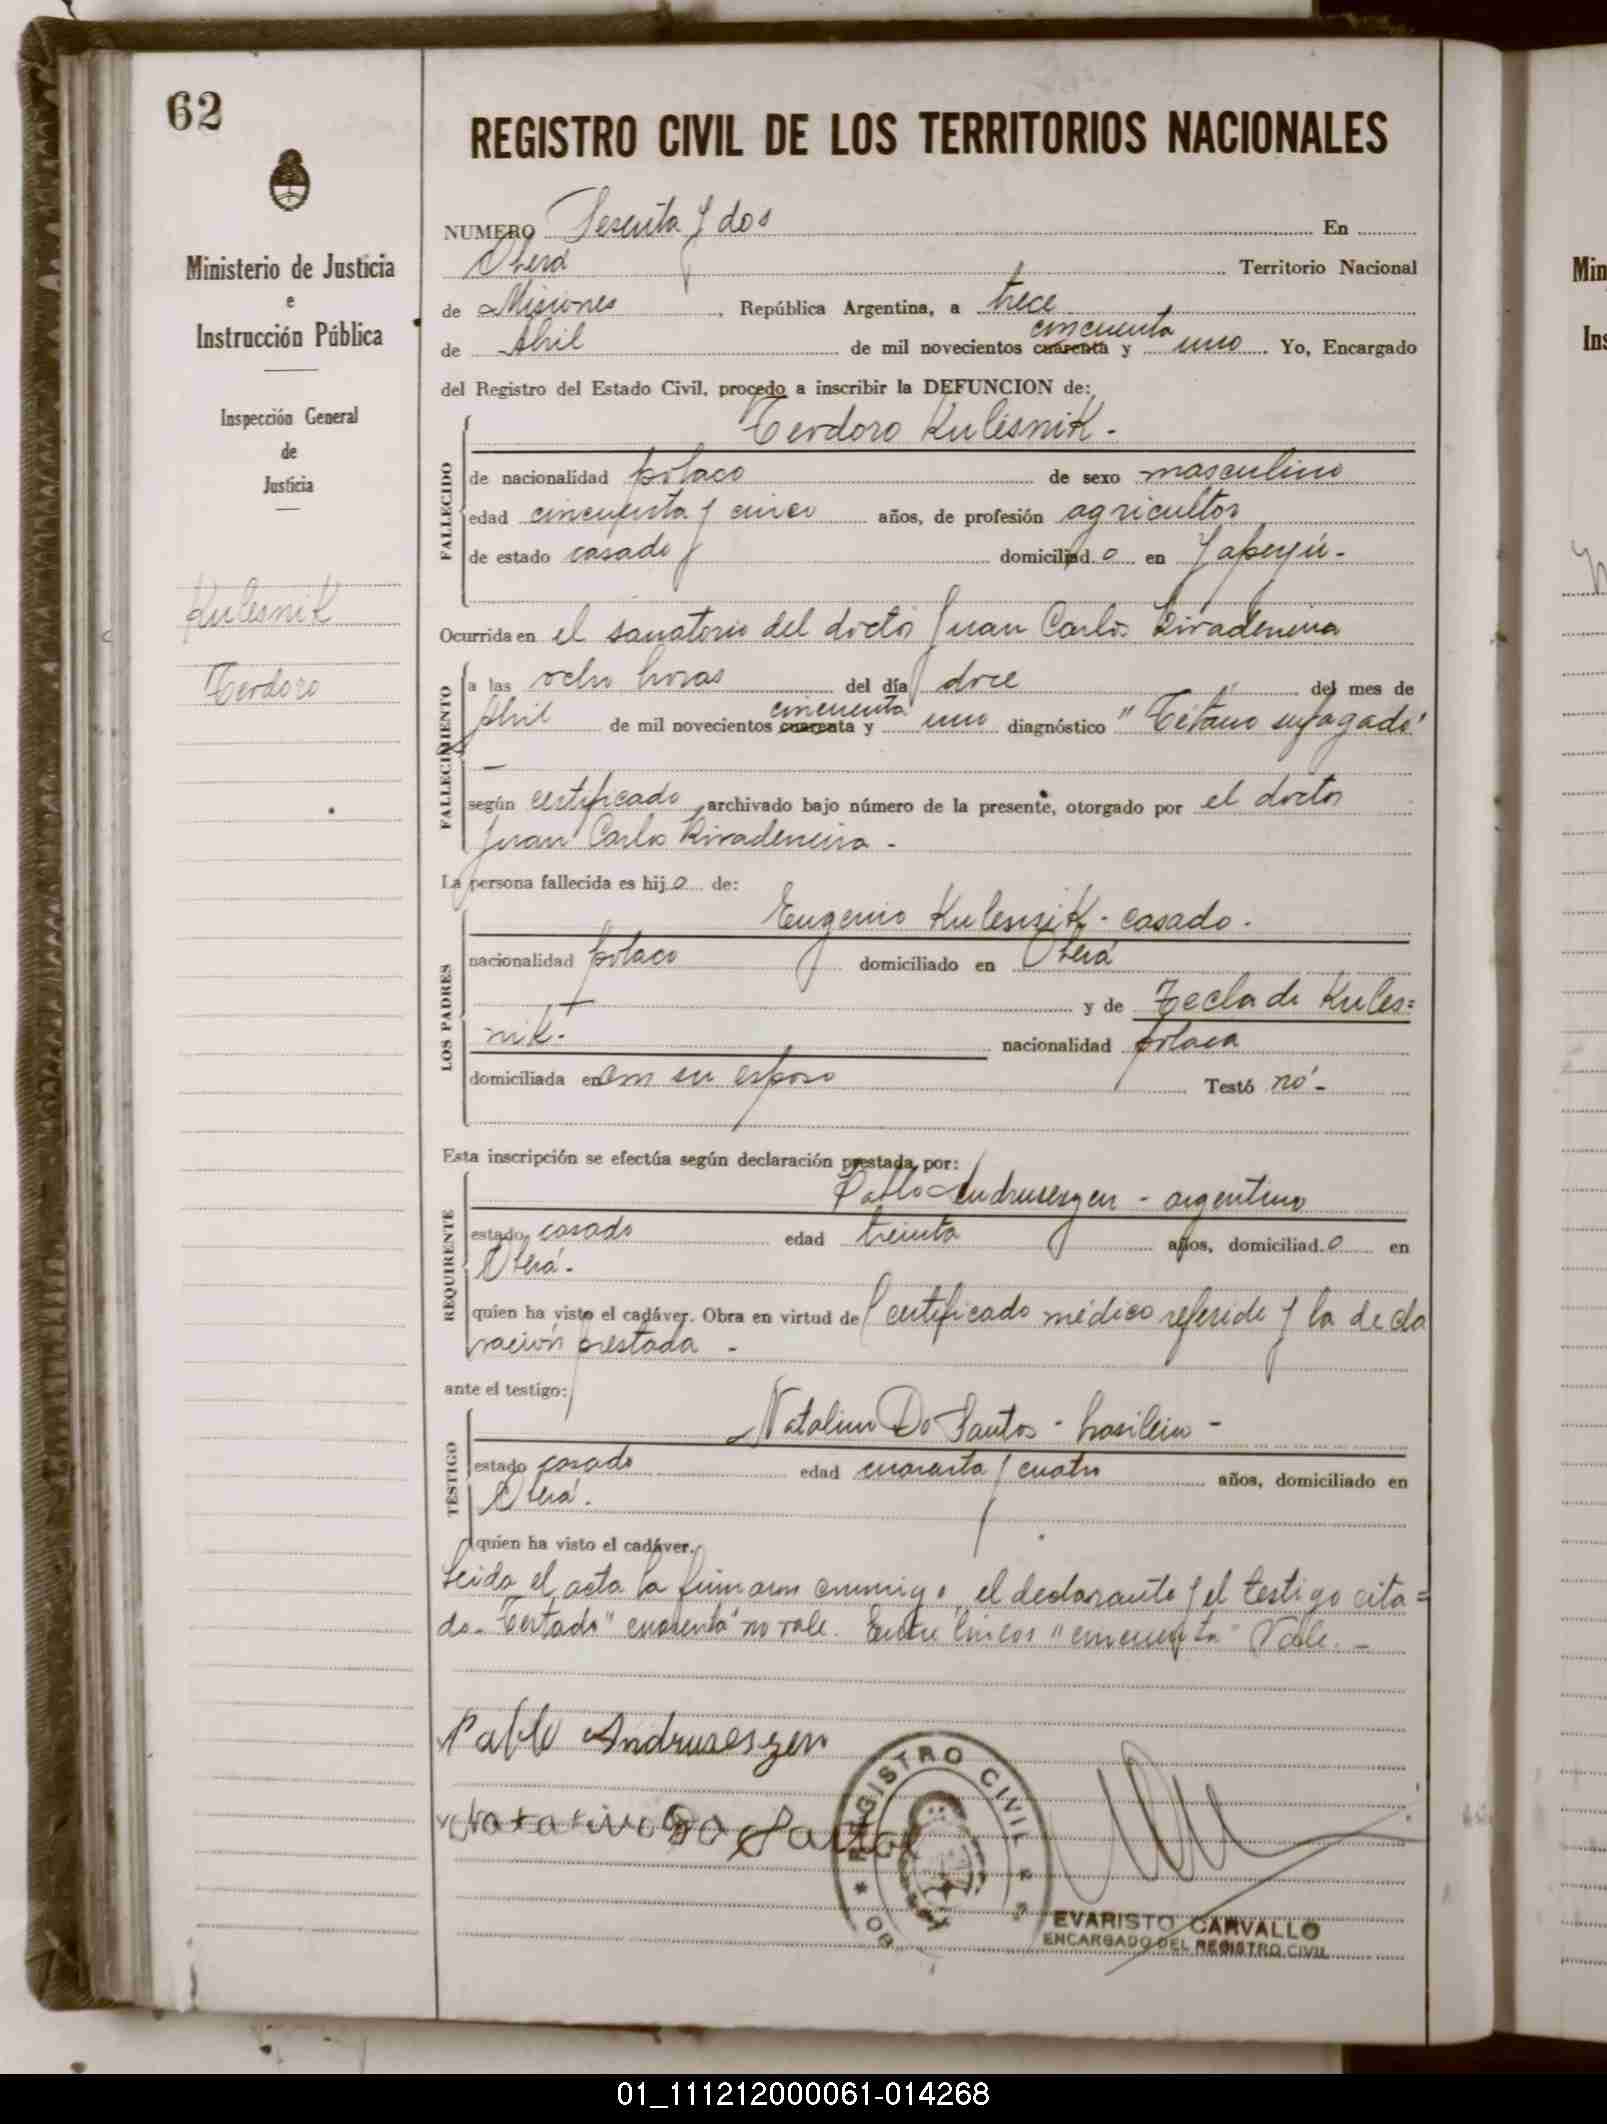 62
REGISTRO CIVIL DE LOS TERRITORIOS NACIONALES
Ministerio de Justicia
e
Instrucción Pública
Inspección General
de
Justicia
Kulesnik
Teodoro
NUMERO Sesenta y dos En
Oberá Territorio Nacional
de Misiones, República Argentina, a trece
de Abril de mil novecientos cuarenta cincuenta y uno Yo, Encargado
del Registro del Estado Civil, procedo a inscribir la DEFUNCION de:
FALLECIDO
Teodoro Kulesnik.
de nacionalidad polaco de sexo masculino
edad cincuenta y cinco años, de profesión agricultor
de estado casado domiciliado en Yapeyú.
Ocurrida en el sanatorio del doctor Juan Carlos Rivadeneira
FALLECIMIENTO
a las ocho horas del día doce del mes de
Abril de mil novecientos cuarenta cincuenta y uno diagnóstico "Tétano
según certificado archivado bajo número de la presente, otorgado por el doctor
Juan Carlos Rivadeneira -
La persona fallecida es hijo de:
LOS PADRES
Eugenio Kulensik - casado.
nacionalidad polaco domiciliado en Oberá
y de Tecla de Kules=
nik.
nacionalidad polaca
domiciliada en con su esposo Testó no -
Esta inscripción se efectúa según declaración prestada por:
REQUIRENTE
Pablo Andruseszen - argentino
estado casado edad treinta años, domiciliado en
Oberá.
quien ha visto el cadáver. Obra en virtud del certificado médico referido y la decla
ración prestada -
ante el testigo:
TESTIGO
Natalino Do Santos - brasilero -
estado casado edad cuarenta y cuatro años, domiciliado en
Oberá.
quien ha visto el cadáver.
Leida el acta la firmaron conmigo, el declarante y el testigo cita=
do. Testado "cuarenta" no vale. Entre lineas "cincuenta" Vale. -
Pablo Andruseszen
Natalino Do Santos
REGISTRO CIVIL
EVARISTO CARVALLO
ENCARGADO DEL REGISTRO CIVIL
Min
Ins
01_111212000061-014268